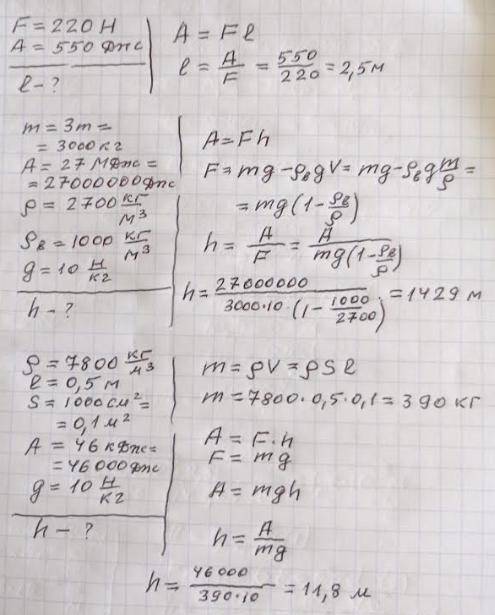 F = 220 Н
A = 550 Дж
l - ?
A = Fl
l = A/F = 550/220 = 2,5 м
m = 3т =
= 3000 кг
A = 27 МДж =
= 27000000 Дж
ρ = 2700 кг/м³
ρв = 1000 кг/м³
g = 10 Н/кг
h - ?
A = Fh
F = mg - ρв g V = mg - ρв g m/ρ =
= mg(1 - ρв/ρ)
h = A/F = A/mg(1 - ρв/ρ)
h = 27000000/3000·10·(1 - 1000/2700) = 1429 м
ρ = 7800 кг/м³
l = 0,5 м
S = 1000 см² =
= 0,1 м²
A = 46 кДж =
= 46000 Дж
g = 10 Н/кг
h - ?
m = ρV = ρSl
m = 7800·0,5·0,1 = 390 кг
A = F·h
F = mg
A = mgh
h = A/mg
h = 46000/390·10 = 11,8 м